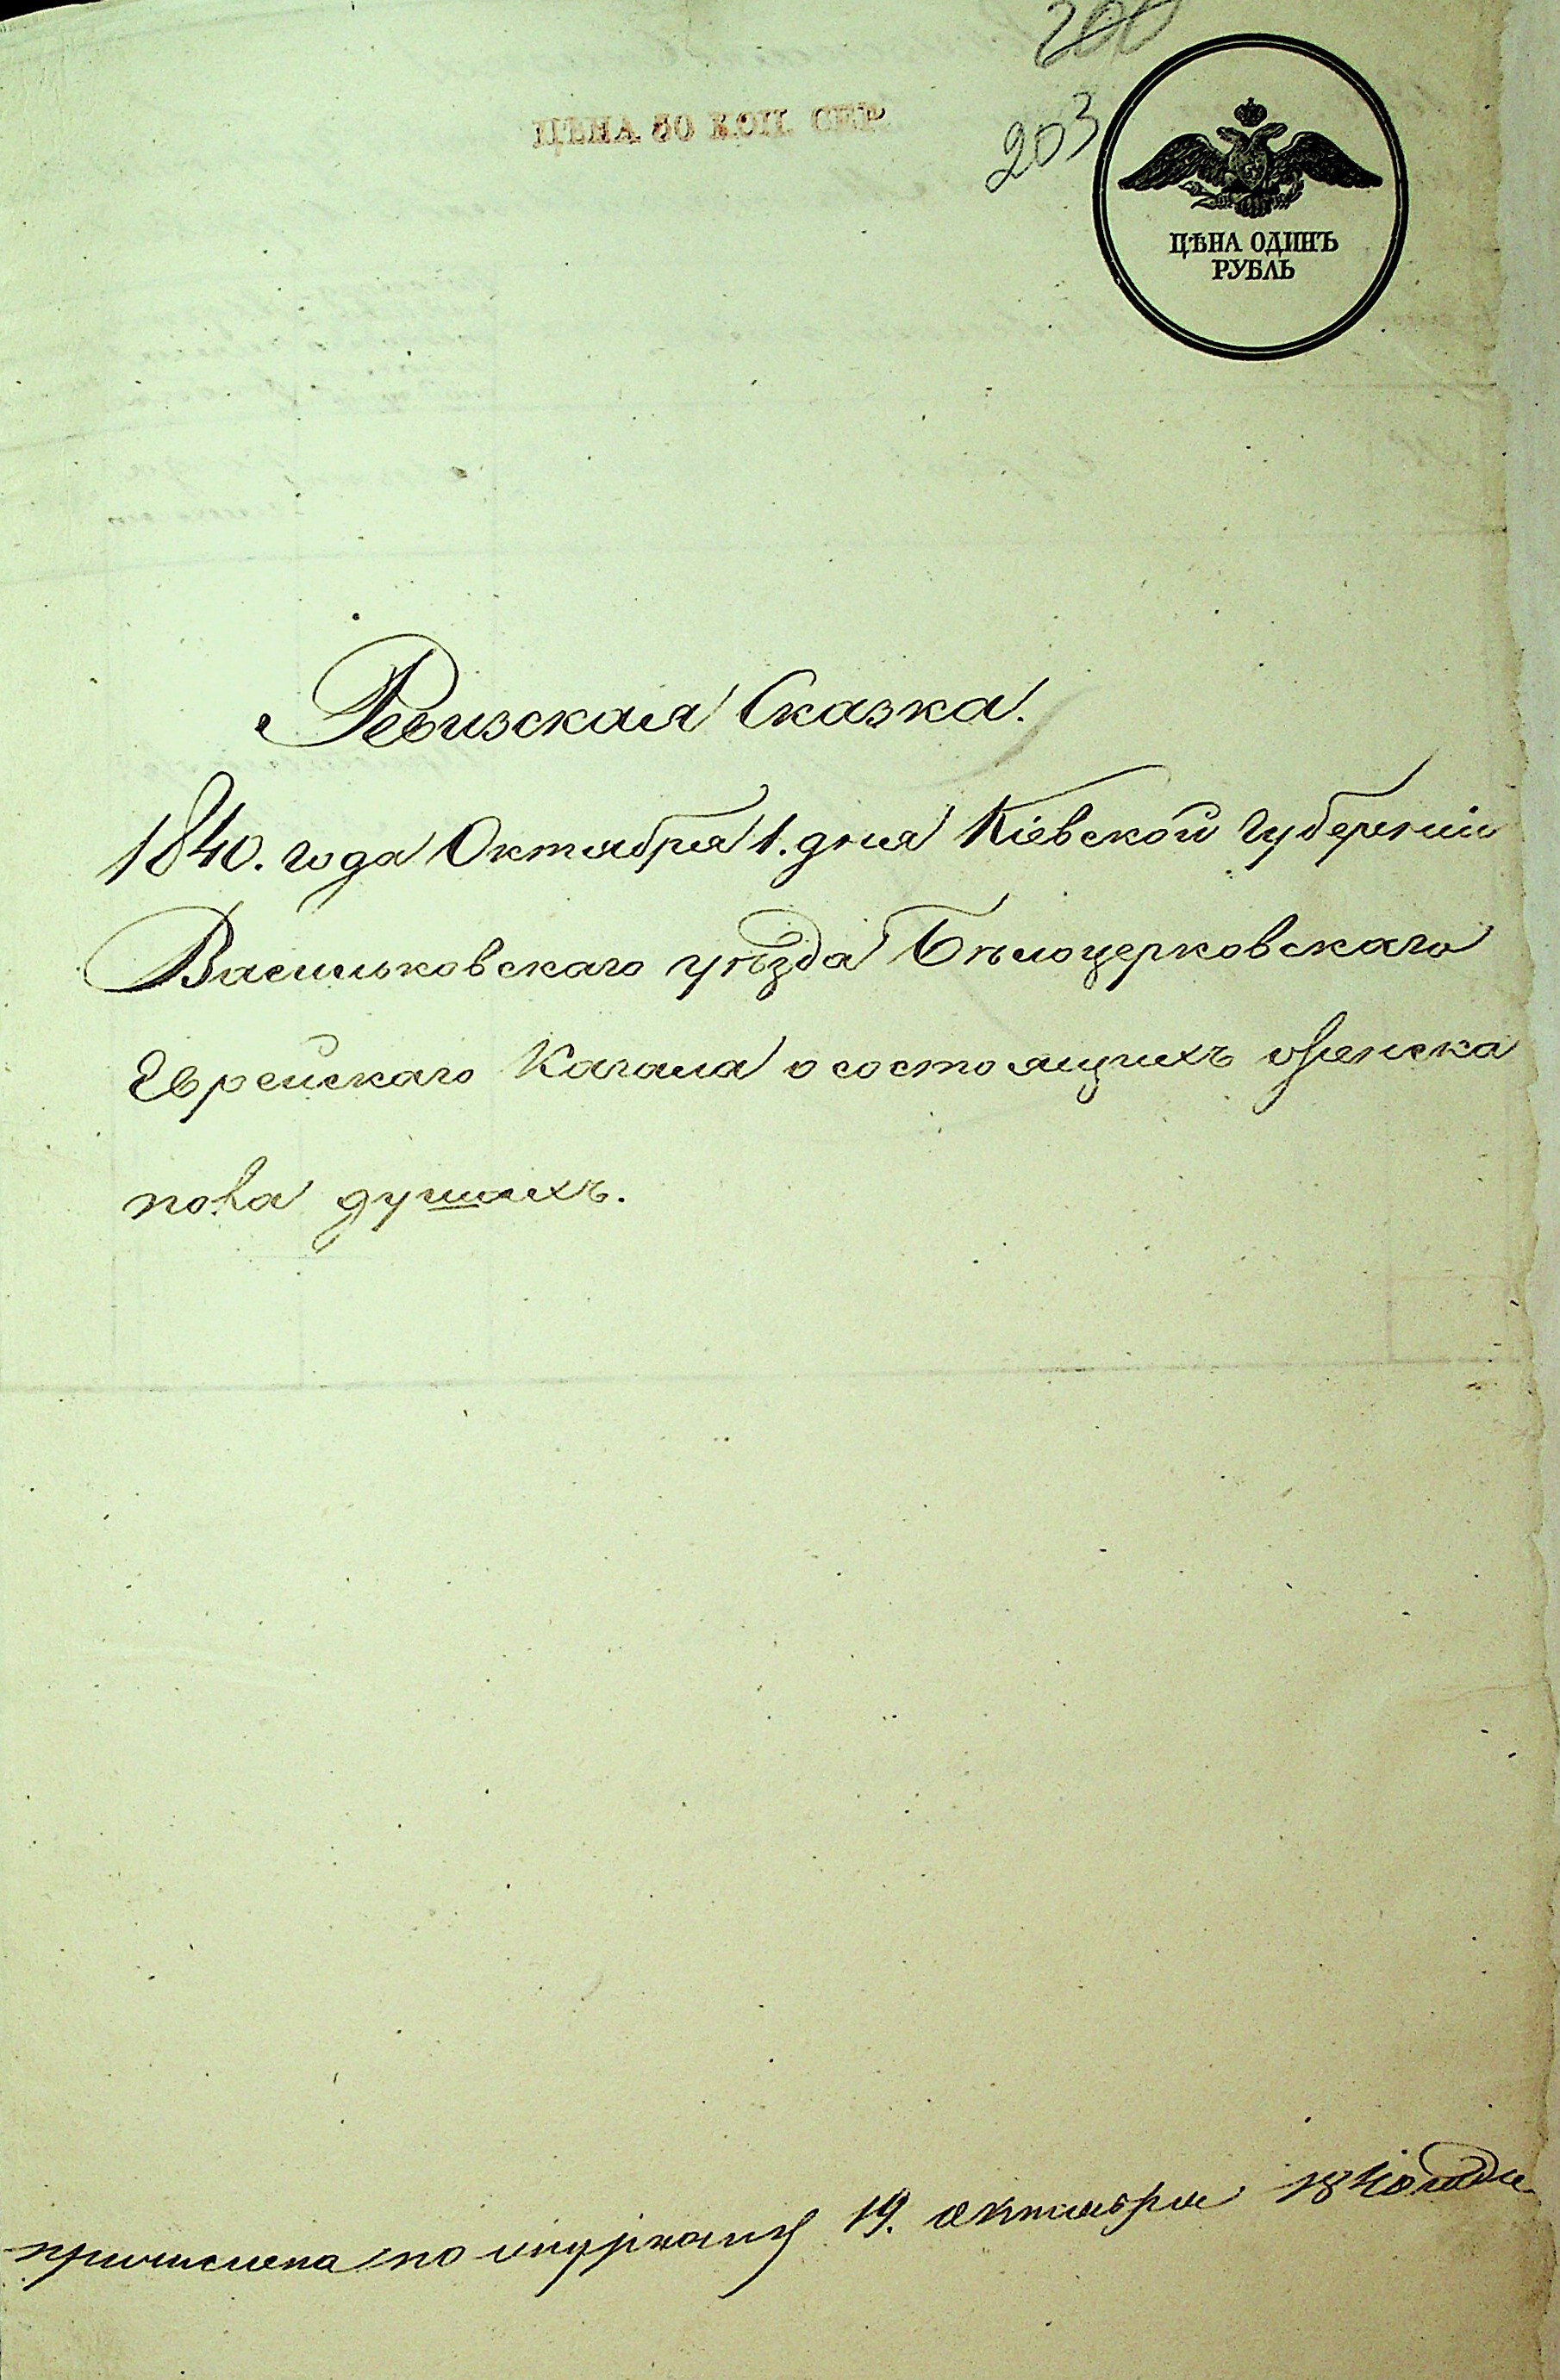 200
203
ЦѢНА 50 КОП. СЕР.
ЦѢНА ОДИНЪ
РУБЛЬ
Ревизская Сказка.
1840. года Октября 1. дня Кіевской Губерніи
Васильковскаго уѣзда Бѣлоцерковскаго
Еврейскаго Кагала о состоящихъ женска
пола душахъ.
причислена по 19. октября 1840 года